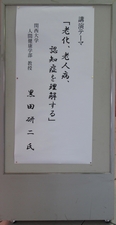 講演テーマ
「老化、老人病、
認知症を理解する」
関西大学
人間健康学部 教授
黒田 研二 氏